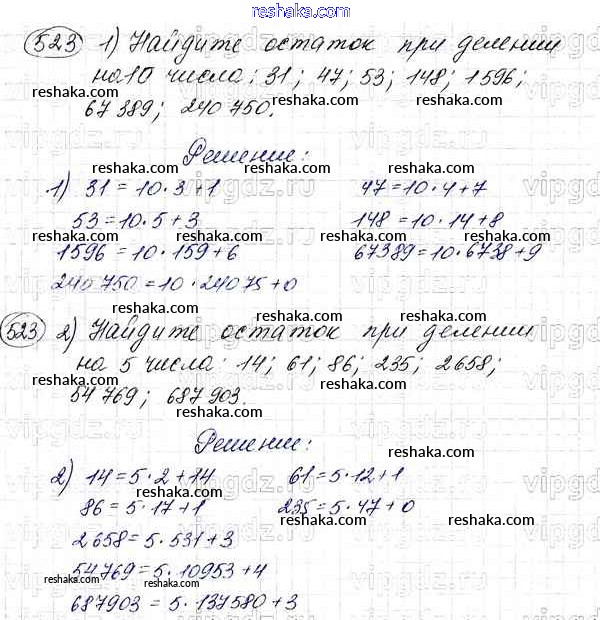 www.reshaka.com
523 1) Найдите остаток при делении
на 10 числа: 31; 47; 53; 148; 1596;
reshaka.com reshaka.com reshaka.com
67 389; 240 750.
Решение:
reshaka.com reshaka.com reshaka.com
1) 31 = 10·3+1 47 = 10·4+7
53 = 10·5+3 148 = 10·14+8
reshaka.com reshaka.com reshaka.com
1596 = 10·159+6 67389 = 10·6738+9
240 750 = 10·24075+0
reshaka.com reshaka.com reshaka.com
523 2) Найдите остаток при делении
reshaka.com reshaka.com reshaka.com
на 5 числа: 14; 61; 86; 235; 2658;
54 769; 687 903.
reshaka.com
Решение:
reshaka.com reshaka.com reshaka.com
2) 14 = 5·2+14 61 = 5·12+1
reshaka.com reshaka.com
86 = 5·17+1 235 = 5·47+0
2658 = 5·531+3
reshaka.com reshaka.com reshaka.com
54769 = 5·10953+4
reshaka.com
687903 = 5·137580+3
reshaka.com reshaka.com
vipgdz.ru